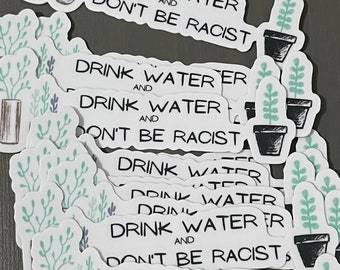 AND
DON'T BE RACIST
DRINK WATER
AND
DRINK WATER
AND
DON'T BE RACIST
DRINK WATER
AND
DRINK WATER
DRINK WATER
AND
DON'T BE RACIST